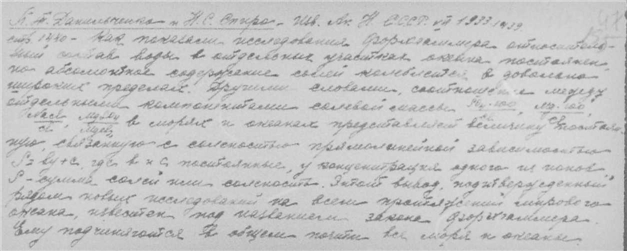 П. Т. Данильченко и Н. С. Спиро - Изв. Ак Н. СССР. VII 1933
стр 1470 - Как показали исследования Форхгаммера относитель-
ный состав воды в отдельных участках океана постоянен,
но абсолютное содержание солей колеблется в довольно
широких пределах. Другими словами, соотношение между
отдельными компонентами солевой массы
в морях и океанах представляет величину постоян-
ную, связанную с соленостью прямолинейной зависимостью
S = by + c, где b и c, постоянные, y концентрация одного из ионов
S - сумма солей или соленость. Этот вывод, подтвержденный
рядом новых исследований на всем протяжении мирового
океана, известен под названием закона Форхгаммера.
Ему подчиняются в общем почти все моря и океаны